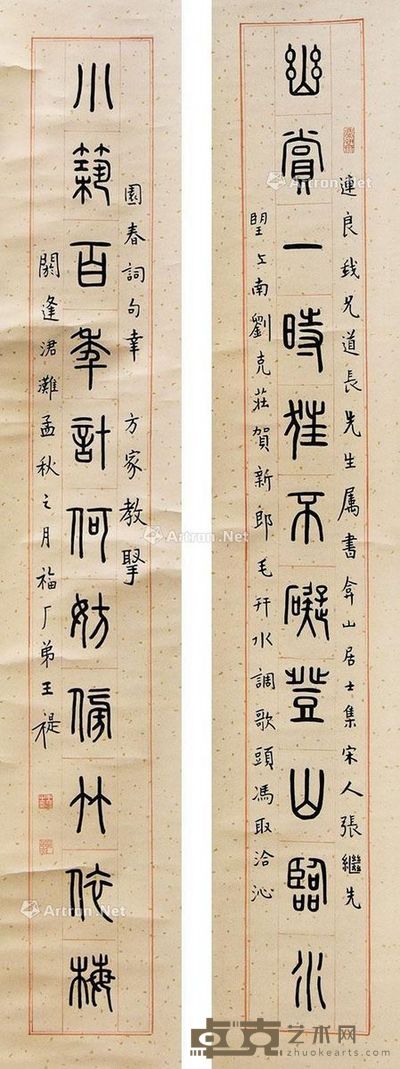 連良我兄道長先生属書弇山居士集宋人張繼先
幽賞一時狂不礙登山臨水
朢江南劉克莊賀新郎毛幵水調歌頭馮取洽沁
園春詞句幸 方家教掔
小築百年計何妨傍竹依梅
閼逢涒灘孟秋之月福厂弟王禔
Artron.Net
卓克艺术网
zhuokearts.com